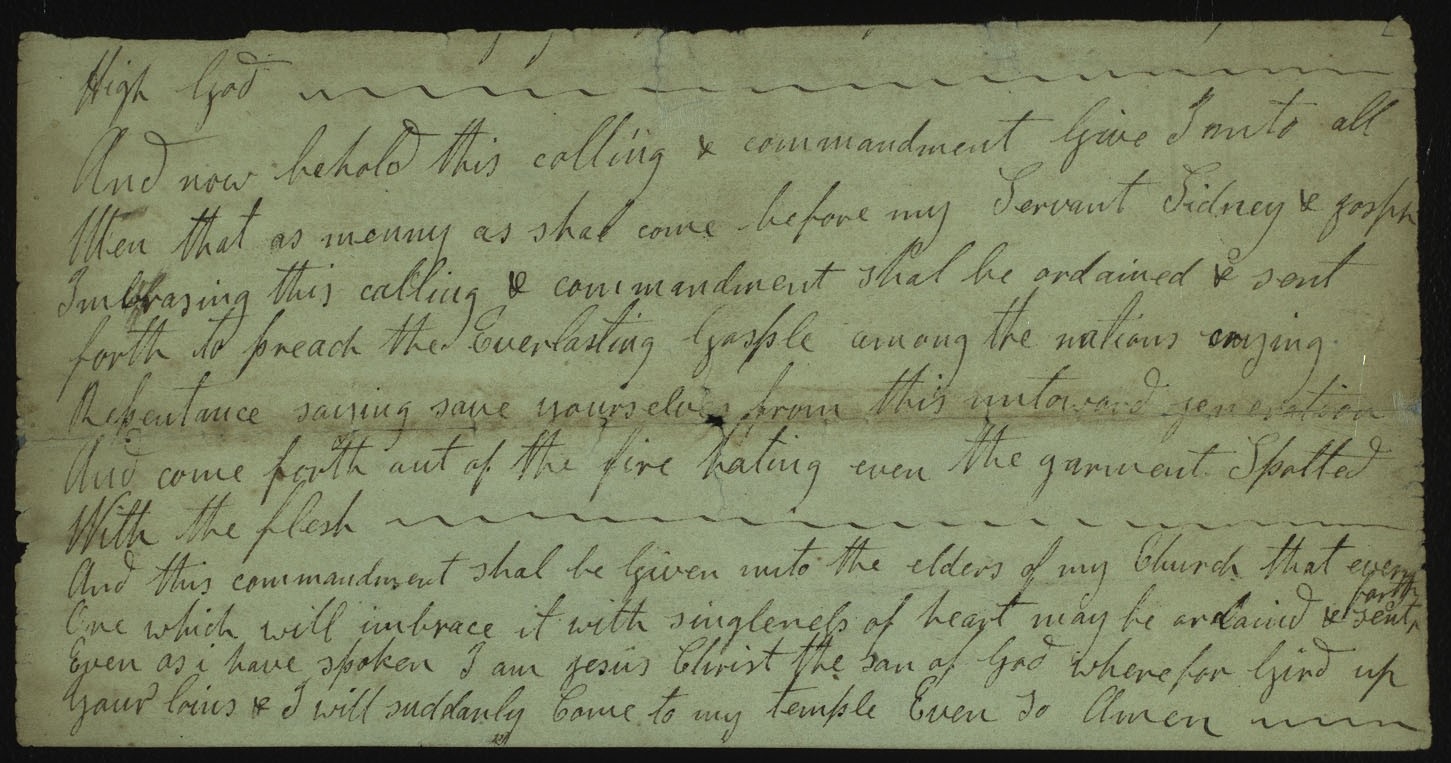 High God
And now behold this calling & commandment Give I unto all
Men that as menny as shal come before my Servant Sidney & Joseph
Imbrasing this calling & commandment shal be ordained & sent
forth to preach the Everlasting Gosple among the nations crying
Repentance saying save yourselves from this untoward generation
And come forth out of the fire hating even the garment Spotted
With the flesh
And this commandment shal be Given unto the elders of my Church that every
One which will imbrace it with singleness of heart may be ordaind & sent forth
Even as i have spoken I am jesus Christ the son of God wherefor Gird up
your loins & I will suddanly Come to my temple Even So Amen